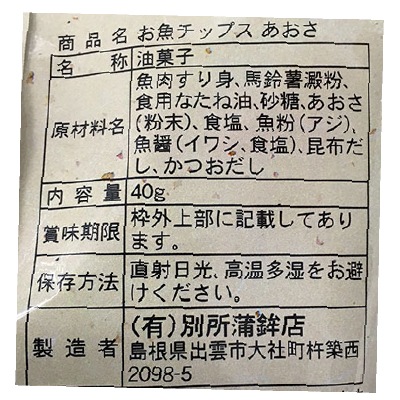 商品名 お魚チップス あおさ
名称 油菓子
原材料名 魚肉すり身、馬鈴薯澱粉、
食用なたね油、砂糖、あおさ
(粉末)、食塩、魚粉(アジ)、
魚醤(イワシ、食塩)、昆布だ
し、かつおだし
内容量 40g
賞味期限 枠外上部に記載してあり
ます。
保存方法 直射日光、高温多湿をお避
けください。
製造者 (有)別所蒲鉾店
島根県出雲市大社町杵築西
2098-5